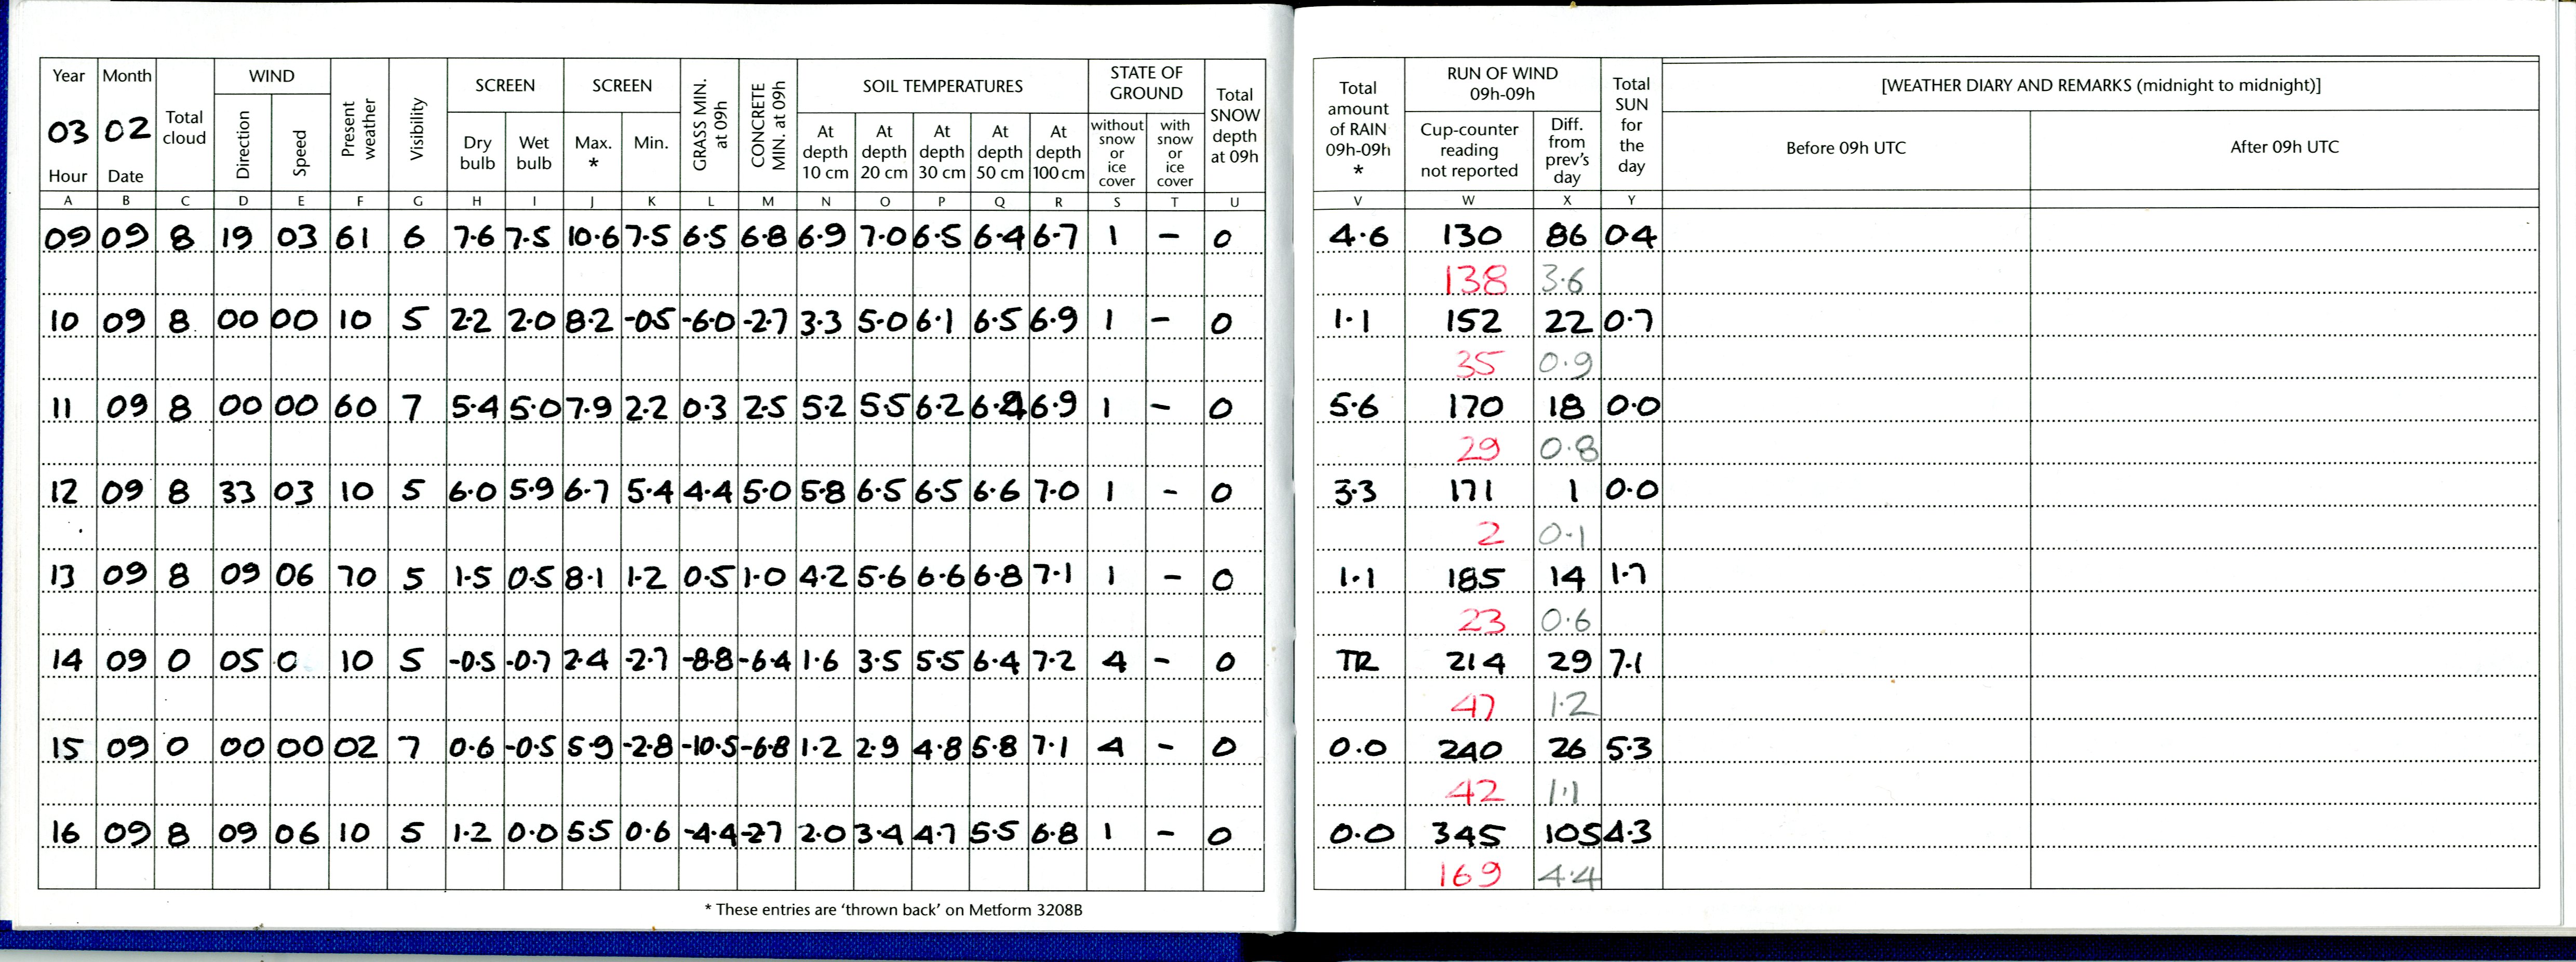 Year Month WIND SCREEN SCREEN SOIL TEMPERATURES STATE OF GROUND
03 02 Total cloud Direction Speed Present weather Visibility Dry bulb Wet bulb Max. * Min. GRASS MIN. at 09h CONCRETE MIN. at 09h At depth 10 cm At depth 20 cm At depth 30 cm At depth 50 cm At depth 100 cm without snow or ice cover with snow or ice cover Total SNOW depth at 09h
Hour Date
Total amount of RAIN 09h-09h * RUN OF WIND 09h-09h Cup-counter reading not reported Diff. from prev's day Total SUN for the day [WEATHER DIARY AND REMARKS (midnight to midnight)]
Before 09h UTC After 09h UTC
A B C D E F G H I J K L M N O P Q R S T U V W X Y
09 09 8 19 03 61 6 7.6 7.5 10.6 7.5 6.5 6.8 6.9 7.0 6.5 6.4 6.7 1 - 0 4.6 130 86 04
138 3.6
10 09 8 00 00 10 5 2.2 2.0 8.2 -05 -6.0 -2.7 3.3 5.0 6.1 6.5 6.9 1 - 0 1.1 152 22 0.7
35 0.9
11 09 8 00 00 60 7 5.4 5.0 7.9 2.2 0.3 2.5 5.2 5.5 6.2 6.9 1 - 0 5.6 170 18 0.0
29 0.8
12 09 8 33 03 10 5 6.0 5.9 6.7 5.4 4.4 5.0 5.8 6.5 6.5 6.6 7.0 1 - 0 3.3 171 1 0.0
2 0.1
13 09 8 09 06 70 5 1.5 0.5 8.1 1.2 0.5 1.0 4.2 5.6 6.6 6.8 7.1 1 - 0 1.1 185 14 1.7
23 0.6
14 09 0 05 0 10 5 -0.5 -0.7 2.4 -2.7 -8.8 -6.4 1.6 3.5 5.5 6.4 7.2 4 - 0 TR 214 29 7.1
47 1.2
15 09 0 00 00 02 7 0.6 -0.5 5.9 -2.8 -10.5 -6.8 1.2 2.9 4.8 5.8 7.1 4 - 0 0.0 240 26 5.3
42 1.1
16 09 8 09 06 10 5 1.2 0.0 5.5 0.6 -4.4 -27 2.0 3.4 4.7 5.5 6.8 1 - 0 0.0 345 105 4.3
169 4.4
* These entries are 'thrown back' on Metform 3208B